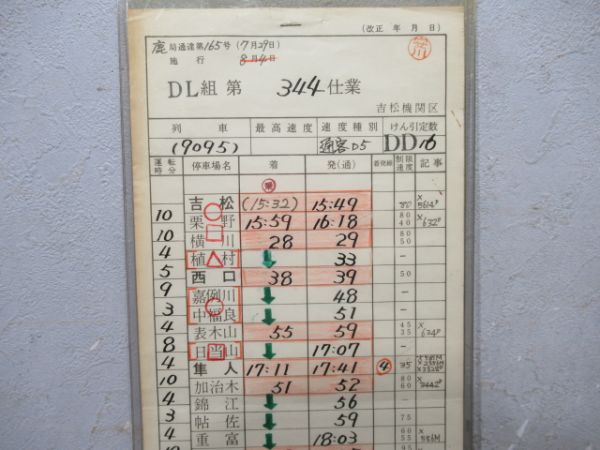 (改正 年 月 日)
鹿局通達第165号 (7月29日)
施行 8月4日
DL組 第 344 仕業
吉松機関区
列車 最高速度 速度種別 けん引定数
(9095) 通客D5 DD16
運転時分 停車場名 着 発(通) 着発線 制限速度 記事
吉松 (15:32) 15:49
10 栗野 15:59 16:18 80 40 ×632D
10 横川 28 29 80 50
4 植村 ↓ 33 −
5 西口 38 39 50
9 嘉例川 ↓ 48 −
3 中福良 ↓ 51 −
4 表木山 55 59 45 35
8 日当山 ↓ 17:07 −
4 隼人 17:11 17:41 4
10 加治木 51 52 80 60
4 錦江 ↓ 56 −
3 帖佐 ↓ 59 75
4 重富 ↓ 18:03 60 55